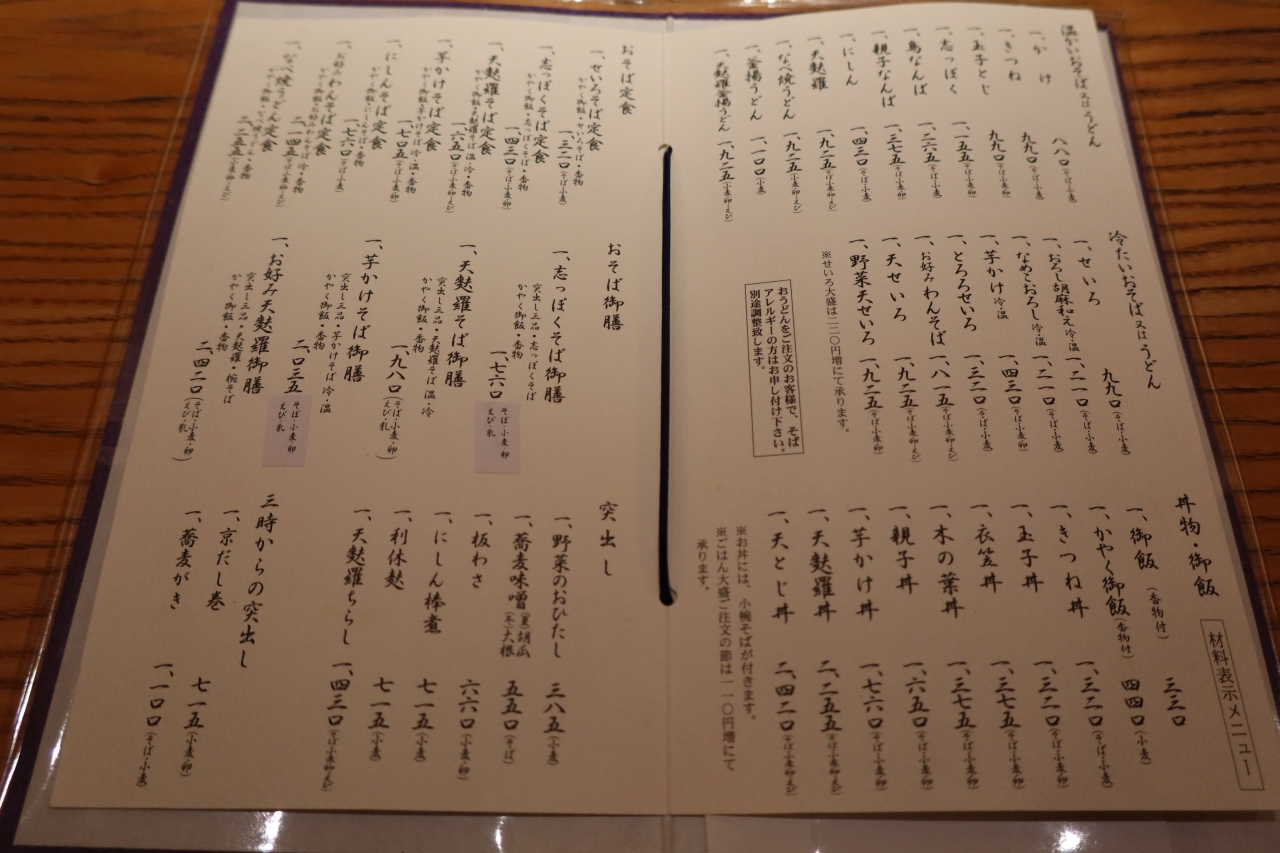 材料表示メニュー
温かいおそば又はうどん
一、かけ 八八〇(そば・小麦)
一、きつね 九九〇(そば・小麦)
一、玉子とじ 九九〇(そば・小麦・卵)
一、志っぽく 一、一五五(そば・小麦・卵)
一、鳥なんば 一、二六五(そば・小麦)
一、親子なんば 一、三七五(そば・小麦・卵)
一、にしん 一、四三〇(そば・小麦)
一、天麩羅 一、九二五(そば・小麦・卵・えび)
一、なべ焼うどん 一、九二五(小麦・卵・えび)
一、釜揚うどん 一、一〇〇(小麦)
一、天麩羅釜揚うどん 一、九二五(小麦・卵・えび)
冷たいおそば又はうどん
一、せいろ 九九〇(そば・小麦)
一、おろし胡麻和え冷・温 一、二一〇(そば・小麦)
一、なめこおろし冷・温 一、二一〇(そば・小麦)
一、芋かけ冷・温 一、四三〇(そば・小麦)
一、とろろせいろ 一、三二〇(そば・小麦)
一、お好みわんそば 一、八一五(そば・小麦・卵・えび)
一、天せいろ 一、九二五(そば・小麦・卵・えび)
一、野菜天せいろ 一、九二五(そば・小麦・卵)
※せいろ大盛は二二〇円増にて承ります。
おうどんをご注文のお客様で、そば
アレルギーの方はお申し付け下さい。
別途調整致します。
丼物・御飯
一、御飯(香物付) 三三〇
一、かやく御飯(香物付) 四四〇(小麦)
一、きつね丼 一、三二〇(そば・小麦)
一、玉子丼 一、三二〇(そば・小麦・卵)
一、衣笠丼 一、三七五(そば・小麦・卵)
一、木の葉丼 一、三七五(そば・小麦・卵)
一、親子丼 一、六五〇(そば・小麦・卵)
一、芋かけ丼 一、七六〇(そば・小麦・卵)
一、天麩羅丼 二、二五五(そば・小麦・卵・えび)
一、天とじ丼 二、四二〇(そば・小麦・卵・えび)
※お丼には、小椀そばが付きます。
※ごはん大盛ご注文の節は一一〇円増にて
承ります。
おそば定食
一、せいろそば定食
かやく御飯・せいろそば・香物
一、三二〇(そば・小麦)
一、志っぽくそば定食
かやく御飯・志っぽくそば・香物
一、四三〇(そば・小麦・卵)
一、天麩羅そば定食
かやく御飯・天麩羅そば 温・冷・香物
一、六五〇(そば・小麦・卵・えび)
一、芋かけそば定食
かやく御飯・芋かけそば 冷・温・香物
一、七〇五(そば・小麦)
一、にしんそば定食
かやく御飯・にしんそば・香物
一、七六〇(そば・小麦)
一、お好みわんそば定食
かやく御飯・お好みわんそば・冷・香物
二、一四五(そば・小麦・卵・えび)
一、なべ焼うどん定食
かやく御飯・なべ焼うどん・香物
二、二五五(小麦・卵・えび)
おそば御膳
一、志っぽくそば御膳
突出し三品・志っぽくそば
かやく御飯・香物
一、七六〇 そば・小麦・卵
えび・乳
一、天麩羅そば御膳
突出し三品・天麩羅そば 温・冷
かやく御飯・香物
一、九八〇(そば・小麦・卵
えび・乳)
一、芋かけそば御膳
突出し三品・芋かけそば 冷・温
かやく御飯・香物
二、〇三五 そば・小麦・卵
えび・乳
一、お好み天麩羅御膳
突出し三品・天麩羅・椀そば
かやく御飯・香物
二、四二〇(そば・小麦・卵
えび・乳)
突出し
一、野菜のおひたし 三八五(小麦)
一、蕎麦味噌(夏)胡瓜(冬)大根 五五〇(そば)
一、板わさ 六六〇(小麦・卵)
一、にしん棒煮 七一五(小麦)
一、利休麩 七一五(小麦)
一、天麩羅ちらし 一、四三〇(そば・小麦・卵・えび)
三時からの突出し
一、京だし巻 七一五(小麦・卵)
一、蕎麦がき 一、一〇〇(そば・小麦)